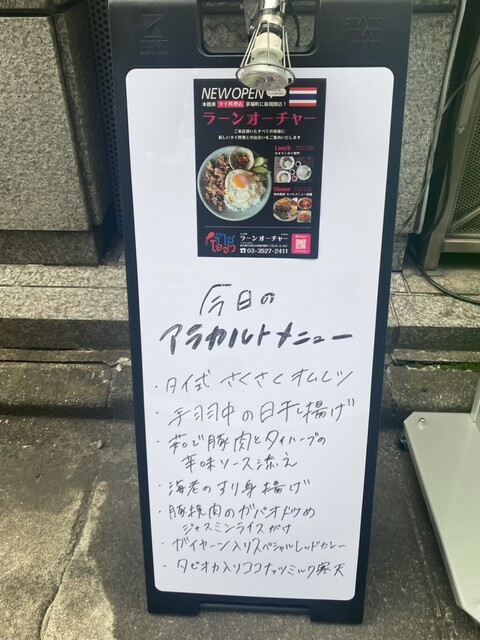 NEW OPEN
本格派 タイ料理店 茅場町に新規開店！
ラーンオーチャー
ご来店頂いたすべての皆様に
新しいタイ料理との出会いをご案内いたします
Lunch
Dinner
ラーンオーチャー
☎03-3527-2411
今日の
アラカルトメニュー
・タイ式 さくさくオムレツ
・手羽中の日干し揚げ
・茹で豚肉とタイハーブの
辛味ソース添え
・海老のすり身揚げ
・豚挽肉のガパオ炒め
ジャスミンライスがけ
・ガイヤーン入りスペシャルレッドカレー
・タピオカ入りココナッツミルク寒天